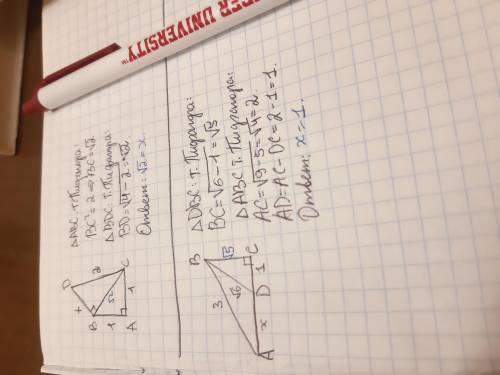 PER UNIVERSITY™
ΔABC: т. Пифагора:
BC² = 2 ⇒ BC = √2
ΔBDC т. Пифагора:
BD = √4-2 = √2.
Ответ: √2 = x.
D
x
2
B
√2
C
1
1
A
ΔDBC: т. Пифагора:
BC = √6-1 = √5
ΔABC т. Пифагора:
AC = √9-5 = √4 = 2.
AD = AC - DC = 2 - 1 = 1.
Ответ: x = 1.
B
3
√6
√5
A
x
D
1
C